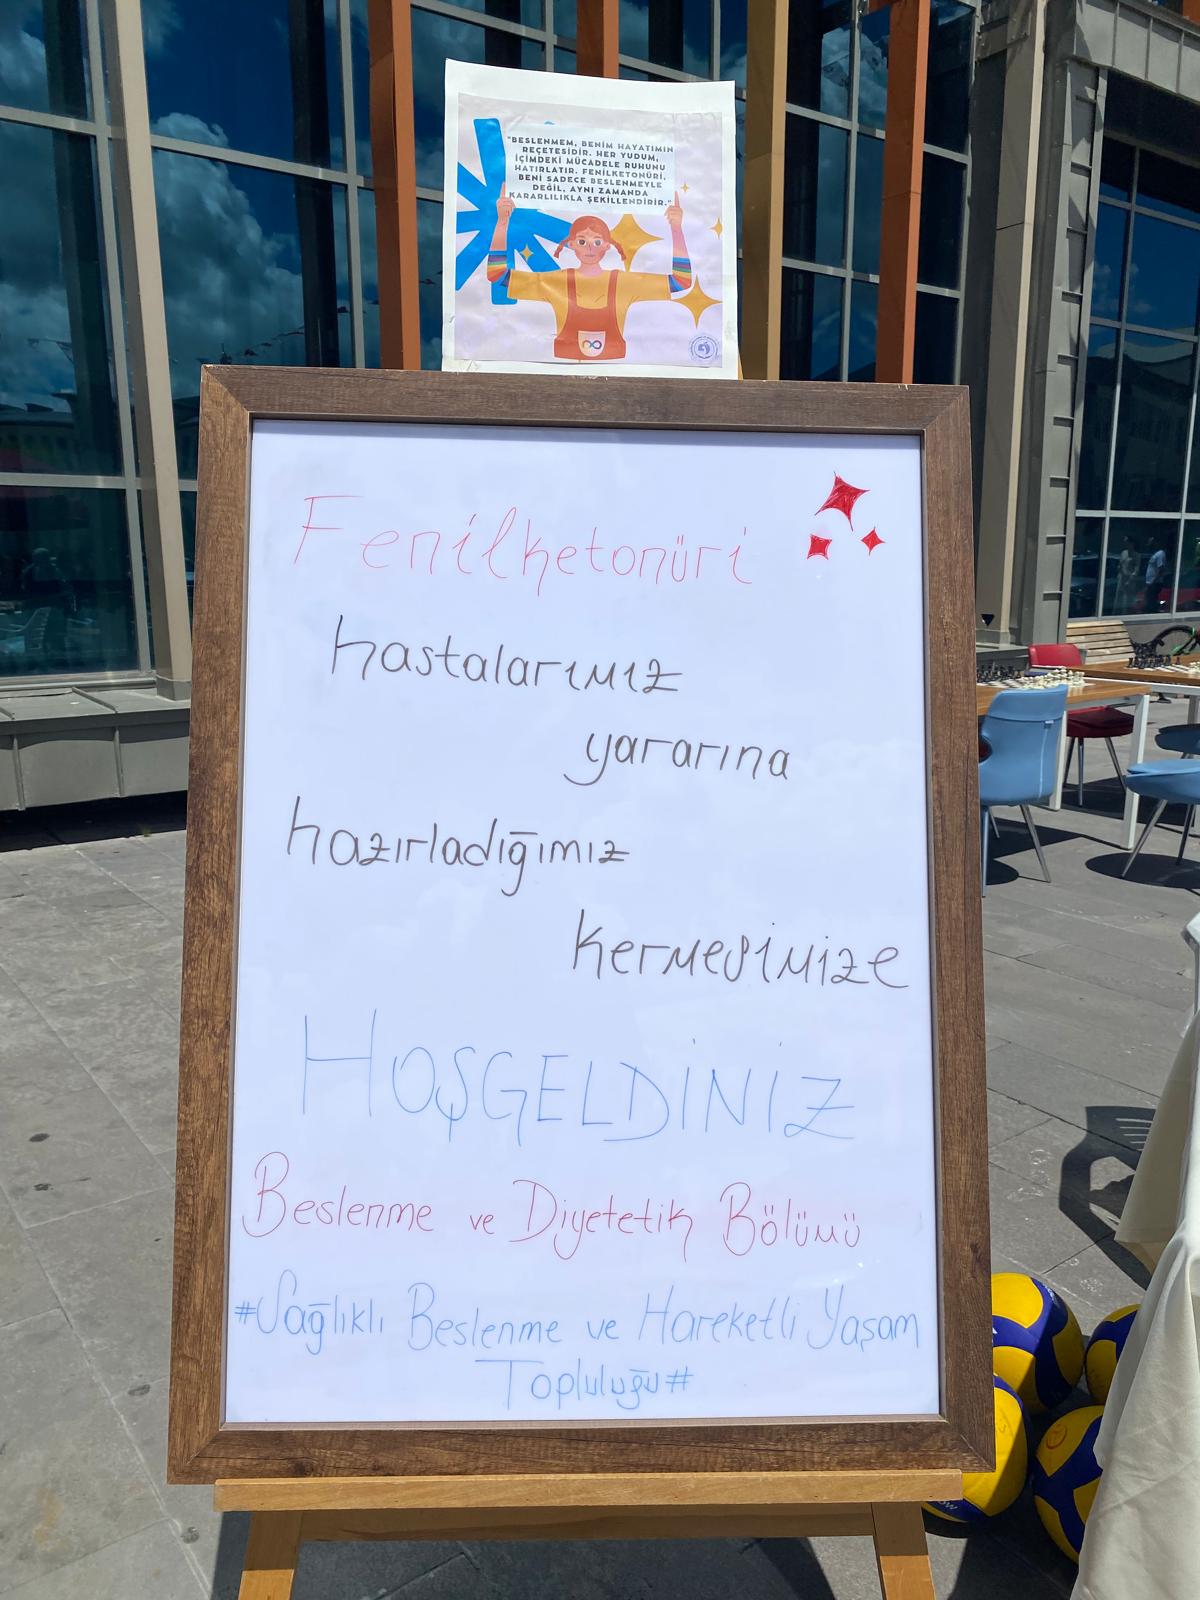 "BESLENMEM, BENİM HAYATIMIN
REÇETESİDİR. HER YUDUM,
İÇİMDEKİ MÜCADELE RUHUNU
HATIRLATIR. FENİLKETONÜRİ,
BENİ SADECE BESLENMEYLE
DEĞİL, AYNI ZAMANDA
KARARLILIKLA ŞEKİLLENDİRİR."
Fenilketonüri
hastalarımız
yararına
hazırladığımız
kermesimize
HOŞGELDİNİZ
Beslenme ve Diyetetik Bölümü
#Sağlıklı Beslenme ve Hareketli Yaşam
Topluluğu#